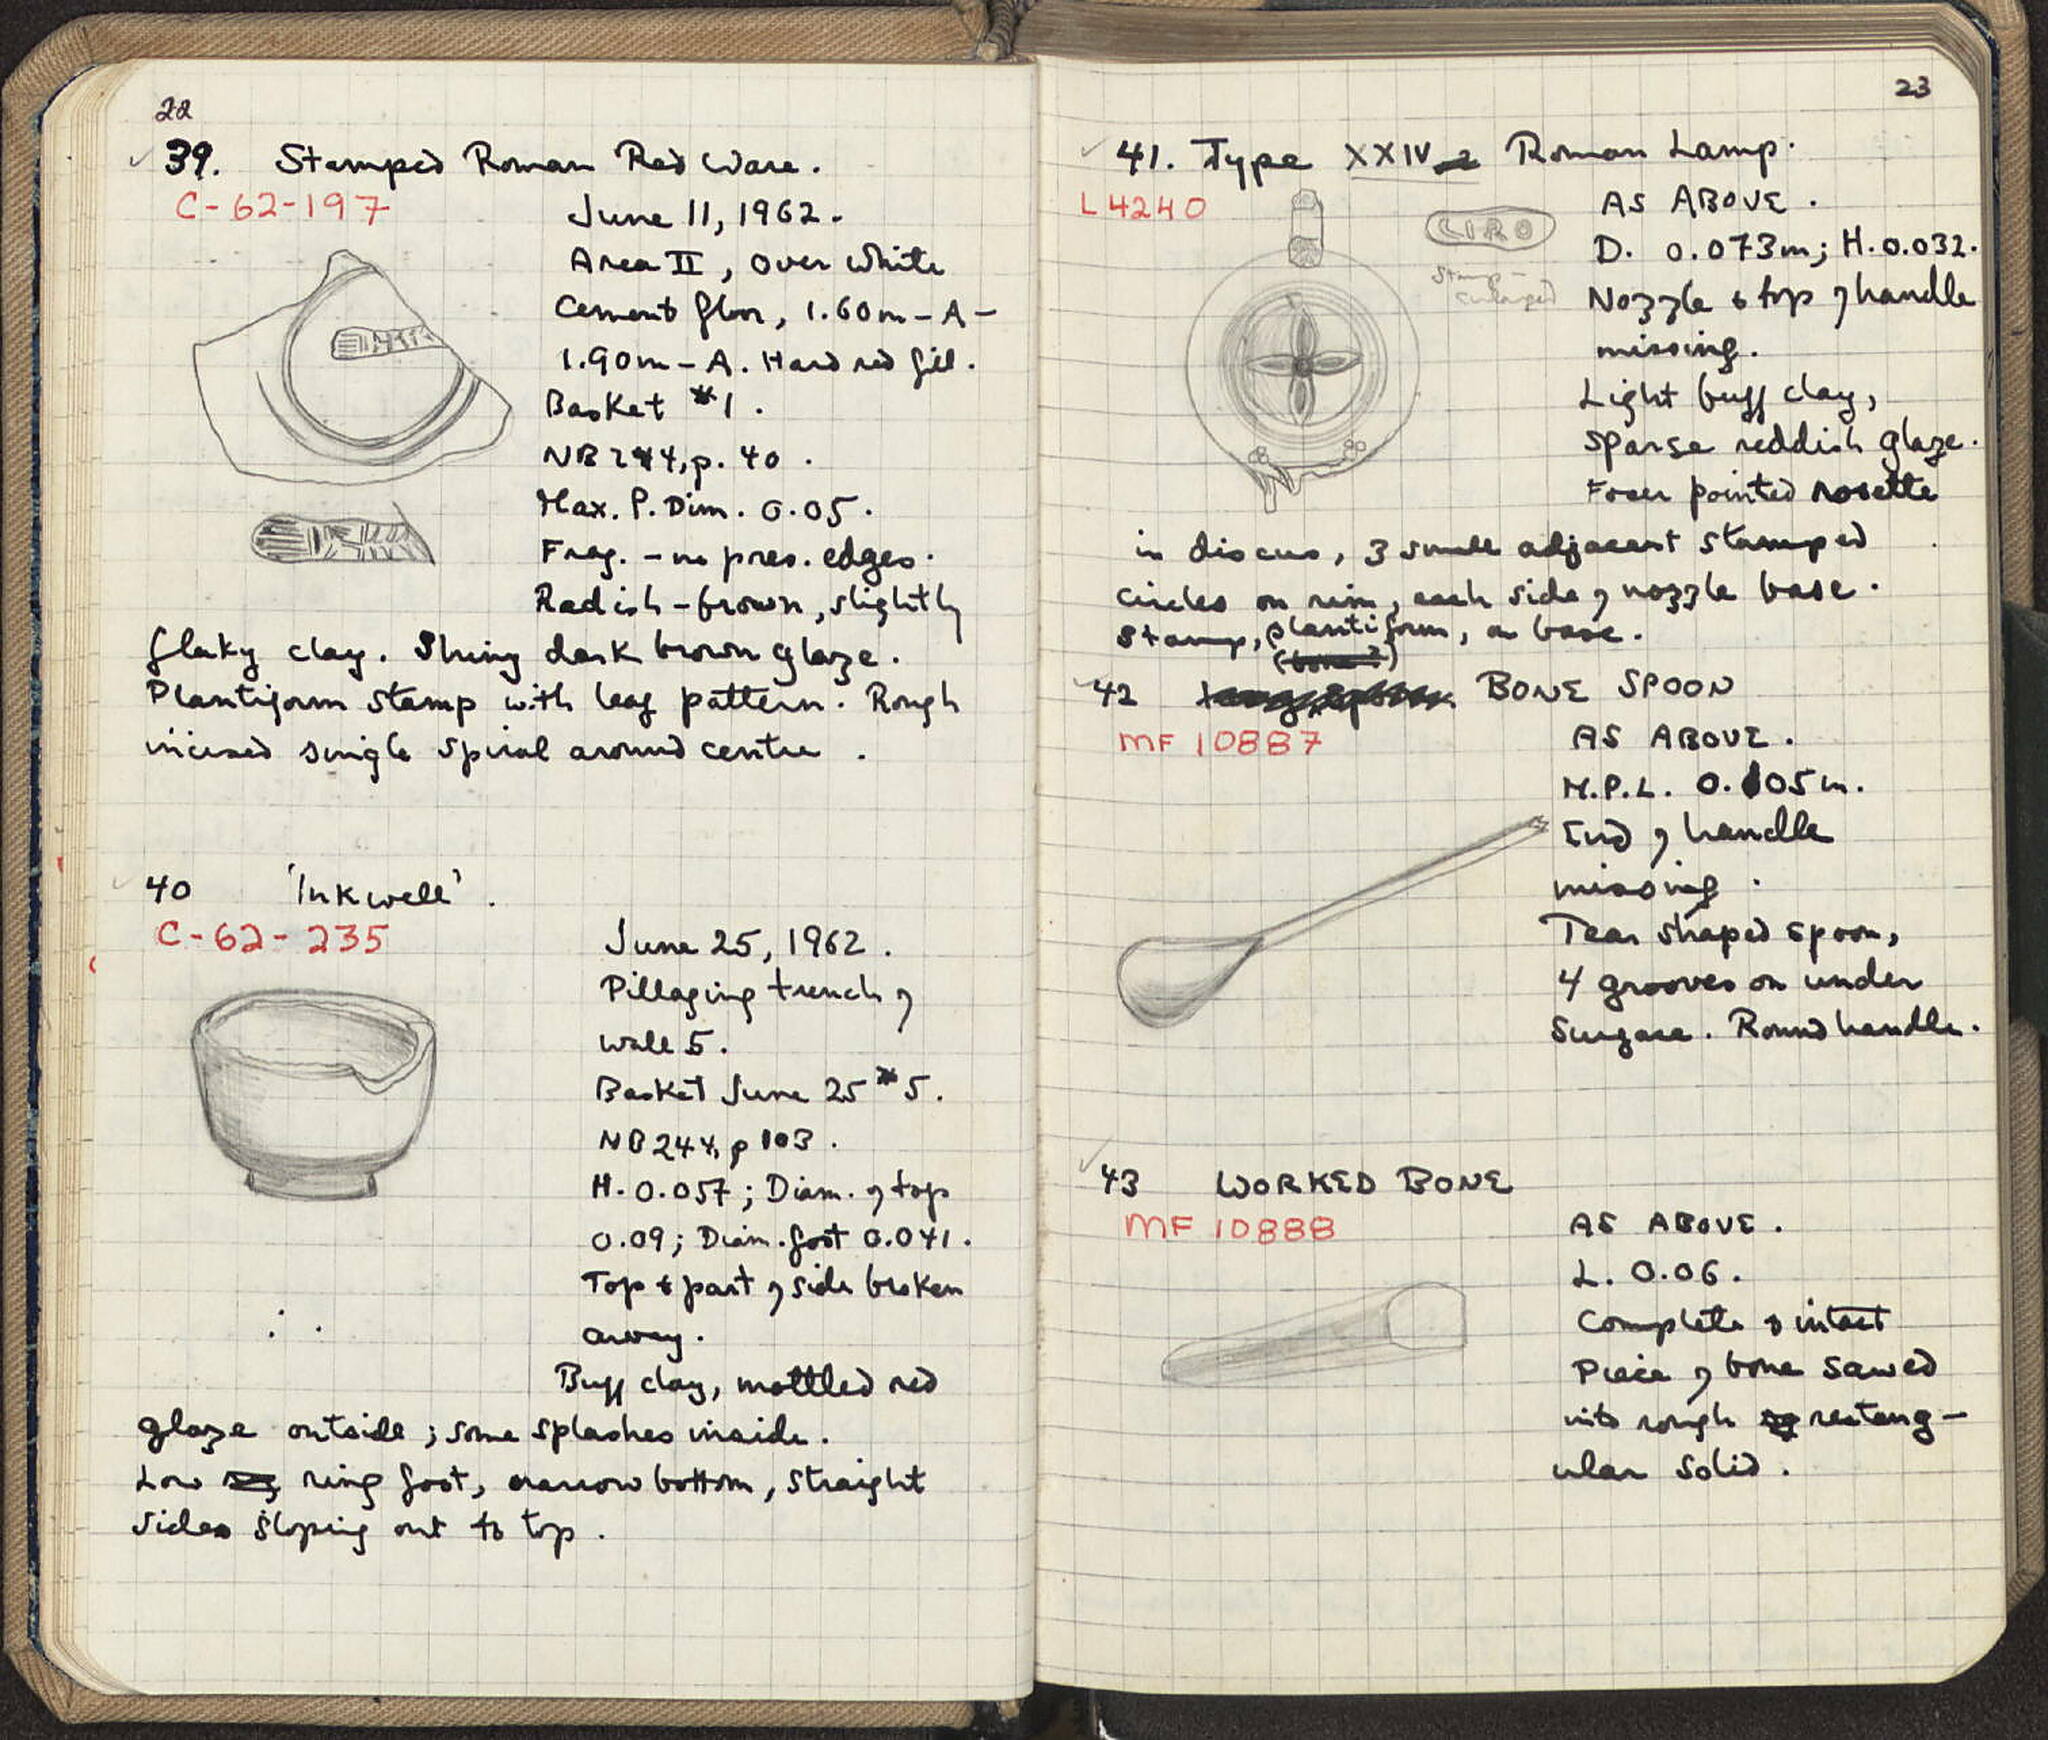 22
39. Stamped Roman Red Ware.
C-62-197
June 11, 1962.
Area II, over white
Cement floor, 1.60m - A -
1.90m - A. Hard red fill.
Basket #1.
NB 244, p. 40.
Max. P. Dim. 0.05.
Frag. - no pres. edges.
Redish-brown, slightly
flaky clay. Shiny dark brown glaze.
Plantiform stamp with leaf pattern. Rough
incised single spiral around centre.
40 'Inkwell'.
C-62-235
June 25, 1962.
Pillaging trench of
wall 5.
Basket June 25 #5.
NB 244, p 103.
H. 0.057; Diam. of top
0.09; Diam. foot 0.041.
Top & part of side broken
away.
Buff clay, mottled red
glaze outside; some splashes inside.
Low ring foot, narrow bottom, straight
sides sloping out to top.
23
41. Type XXIV Roman Lamp.
L4240
LIRO
Stamp -
enlarged
AS ABOVE.
D. 0.073m; H. 0.032.
Nozzle & top of handle
missing.
Light buff clay,
sparse reddish glaze.
Four pointed rosette
in discus, 3 small adjacent stamped
circles on rim, each side of nozzle base.
Stamp, plantiform, on base.
(bone?)
42 BONE SPOON
MF 10887
AS ABOVE.
M.P.L. 0.105m.
End of handle
missing.
Tear shaped spoon,
4 grooves on under
surface. Round handle.
43 WORKED BONE
MF 10888
AS ABOVE.
L. 0.06.
Complete & intact
Piece of bone sawed
into rough rectang-
ular solid.